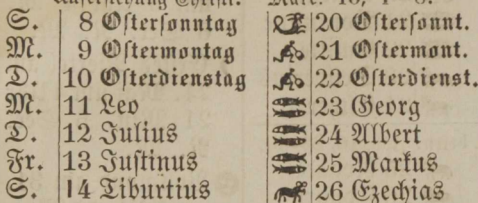 S. 8 Ostersonntag 20 Ostersonnt.
M. 9 Ostermontag 21 Ostermont.
D. 10 Osterdienstag 22 Osterdienst.
M. 11 Leo 23 Georg
D. 12 Julius 24 Albert
Fr. 13 Justinus 25 Markus
S. 14 Tiburtius 26 Ezechias